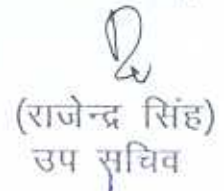 (राजेन्द्र सिंह)
उप सचिव